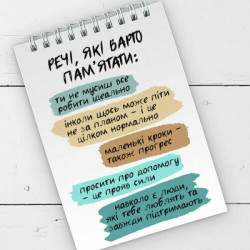 РЕЧІ, ЯКІ ВАРТО
ПАМ'ЯТАТИ:
ти не мусиш все
робити ідеально
інколи щось може піти
не за планом – і це
цілком нормально
маленькі кроки –
також прогрес
просити про допомогу
– це прояв сили
навколо є люди,
які тебе люблять та
завжди підтримають